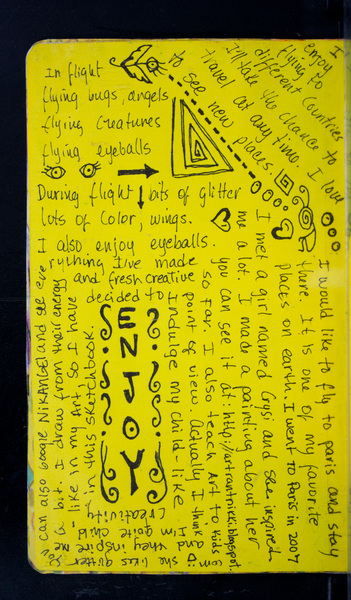 In flight
flying bugs, angels
flying creatures
flying eyeballs
During flight bits of glitter
lots of color, wings.
I also enjoy eyeballs.
I enjoy
flying to
different countries
I'll take the chance to
travel at any time. I love
to see new places.
I would like to fly to paris and stay
there. It is one of my favorite
places on earth. I went to Paris in 2007
I met a girl named Crysi and she inspired
me a lot. I made a painting about her
you can see it at: http://artrantnikki.blogspot.com
so far. I also teach Art to Kids
and they inspire me a bit. I draw from their energy
point of view. Actually I think
I'm quite child
like in my Art. So I have
decided to
Indulge my child like
creativity
in this sketchbook.
ENJOY
she likes glitter
You can also google NikANGEL and see eve
rything I've made
and fresh creative